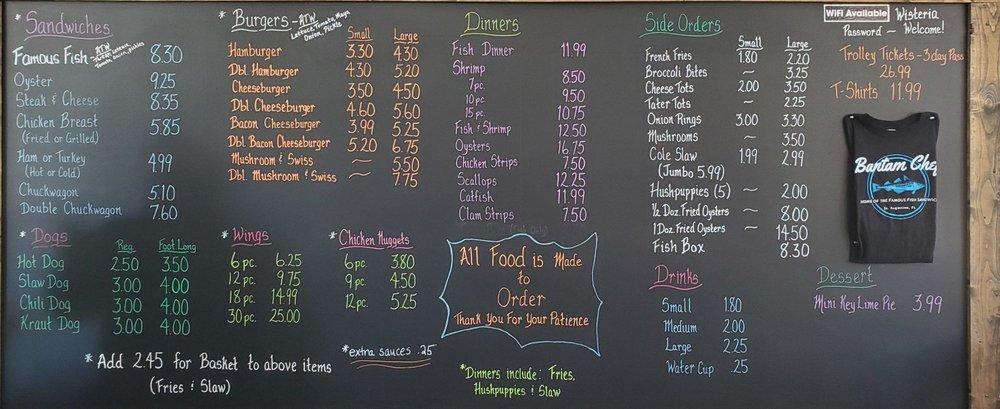 * Sandwiches
Famous Fish - ATW 8.30
Oyster 9.25
Steak & Cheese 8.35
Chicken Breast 5.85
(Fried or Grilled)
Ham or Turkey 4.99
(Hot or Cold)
Chuckwagon 5.10
Double Chuckwagon 7.60
* Burgers - ATW
Lettuce, Tomato, Mayo
Onion, Pickle
Small Large
Hamburger 3.30 4.30
Dbl. Hamburger 4.30 5.20
Cheeseburger 3.50 4.50
Dbl. Cheeseburger 4.60 5.60
Bacon Cheeseburger 3.99 5.25
Dbl Bacon Cheeseburger 5.20 6.75
Mushroom & Swiss ~ 5.50
Dbl. Mushroom & Swiss ~ 7.75
Dinners
Fish Dinner 11.99
Shrimp
7pc. 8.50
10 pc. 9.50
15 pc. 10.75
Fish & Shrimp 12.50
Oysters 16.75
Chicken Strips 7.50
Scallops 12.25
Catfish 11.99
Clam Strips 7.50
Side Orders
Small Large
French Fries 1.80 2.20
Broccoli Bites ~ 3.25
Cheese Tots 2.00 3.50
Tater Tots ~ 2.25
Onion Rings 3.00 3.30
Mushrooms ~ 3.50
Cole Slaw 1.99 2.99
(Jumbo 5.99)
Hushpuppies (5) ~ 2.00
1/2 Doz. Fried Oysters ~ 8.00
1 Doz. Fried Oysters ~ 14.50
Fish Box 8.30
WiFi Available Wisteria
Password ~ Welcome!
Trolley Tickets - 3 day Pass
26.99
T-Shirts 11.99
Bantam Chef
HOME OF THE FAMOUS FISH SANDWICH
St. Augustine, FL
* Dogs
Reg Foot Long
Hot Dog 2.50 3.50
Slaw Dog 3.00 4.00
Chili Dog 3.00 4.00
Kraut Dog 3.00 4.00
* Wings
6 pc. 6.25
12 pc. 9.75
18 pc. 14.99
30 pc. 25.00
* Chicken Nuggets
6 pc. 3.80
9 pc. 4.50
12 pc. 5.25
All Food is Made
to
Order
Thank You For Your Patience
Drinks
Small 1.80
Medium 2.00
Large 2.25
Water Cup .25
Dessert
Mini Key Lime Pie 3.99
* Add 2.45 for Basket to above items
(Fries & Slaw)
*extra sauces .25
*Dinners include: Fries,
Hushpuppies & Slaw